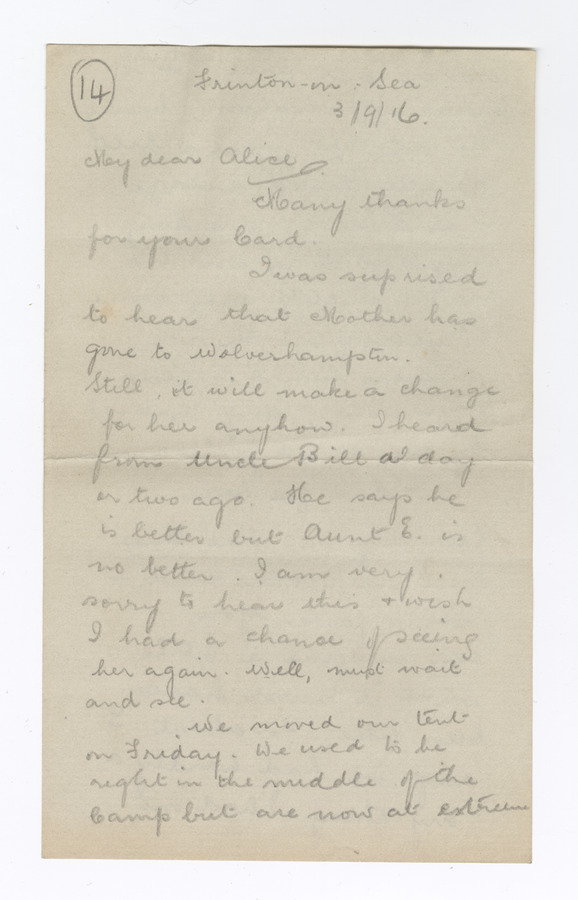 14
Frinton-on-Sea
3/9/16.
My dear Alice,
Many thanks
for your Card.
I was surprised
to hear that Mother has
gone to Wolverhampton.
Still, it will make a change
for her anyhow. I heard
from Uncle Bill a day
or two ago. He says he
is better but Aunt E. is
no better. I am very
sorry to hear this & wish
I had a chance of seeing
her again. Well, must wait
and see.
We moved our tent
on Friday. We used to be
right in the middle of the
Camp but are now at extreme